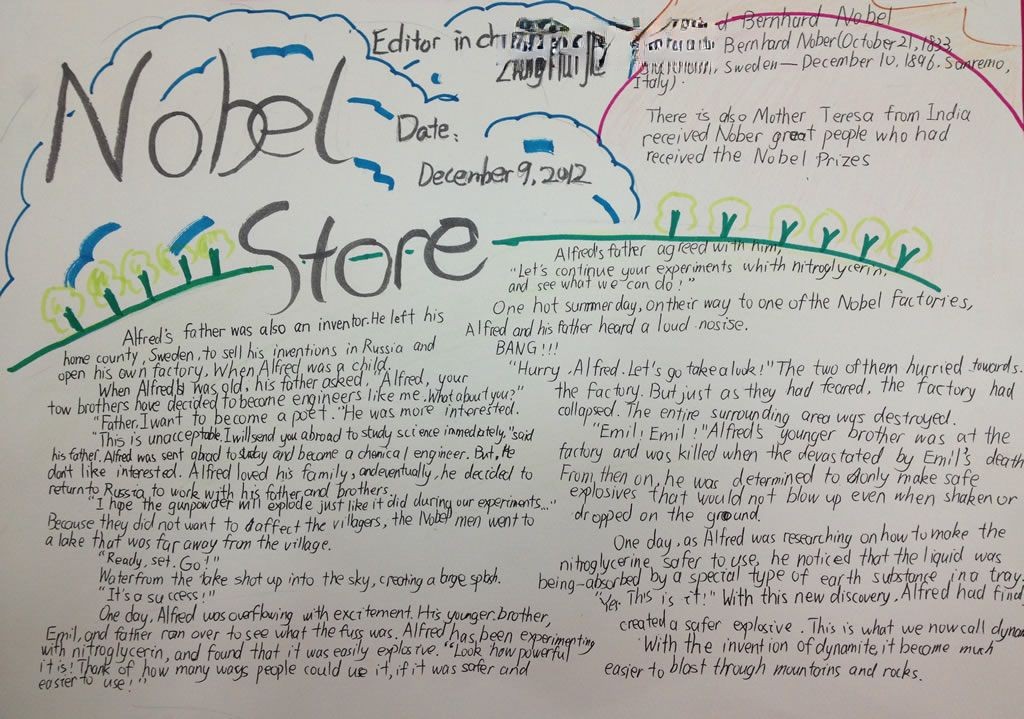 Nobel
Store
Editor in
Date:
December 9, 2012
Bernhard Nobel
Bernhard Nober (October 21, 1833,
Sweden — December 10, 1896. Sanremo,
Italy).
There is also Mother Teresa from India
received Nober great people who had
received the Nobel Prizes
Alfred's father was also an inventor. He left his
home county, Sweden, to sell his inventions in Russia and
open his own factory. When Alfred was a child.
When Alfred's was old, his father asked, "Alfred, your
tow brothers have decided to become engineers like me. What about you?"
"Father, I want to become a poet." He was more interested.
"This is unacceptable. I will send you abroad to study science immediately," said
his father. Alfred was sent abroad to study and become a chemical engineer. But, He
don't like interested. Alfred loved his family, and eventually, he decided to
return to Russia, to work with his father and brothers.
"I hipe the gunpowder will explode just like it did during our experiments..."
Because they did not want to affect the villagers, the Nobel men went to
a lake that was far away from the village.
"Ready, set. Go!"
Water from the lake shot up into the sky, creating a large splash.
"It's a success!"
One day, Alfred was overflowing with excitement. His younger brother,
Emil, and father ran over to see what the fuss was. Alfred has been experimenting
with nitroglycerin, and found that it was easily explosive. "Look how powerful
it is! Think of how many ways people could use it, if it was safer and
easier to use!"
Alfred's father agreed with him,
"Let's continue your experiments whith nitroglycerin,
and see what we can do!"
One hot summer day, on their way to one of the Nobel factories,
Alfred and his father heard a loud nosise.
BANG!!!
"Hurry, Alfred. Let's go take a look!" The two of them hurried towards
the factory. But just as they had feared, the factory had
collapsed. The entire surrounding area was destroyed.
"Emil! Emil!" Alfred's younger brother was at the
factory and was killed when the devastated by Emil's death
From then on, he was determined to only make safe
explosives that would not blow up even when shaken or
dropped on the ground.
One day, as Alfred was researching on how to make the
nitroglycerine safer to use, he noticed that the liquid was
being absorbed by a special type of earth substance in a tray.
"Yer. This is it!" With this new discovery, Alfred had find
created a safer explosive. This is what we now call dynam
With the invention of dynamite, it become much
easier to blast through mountains and rocks.